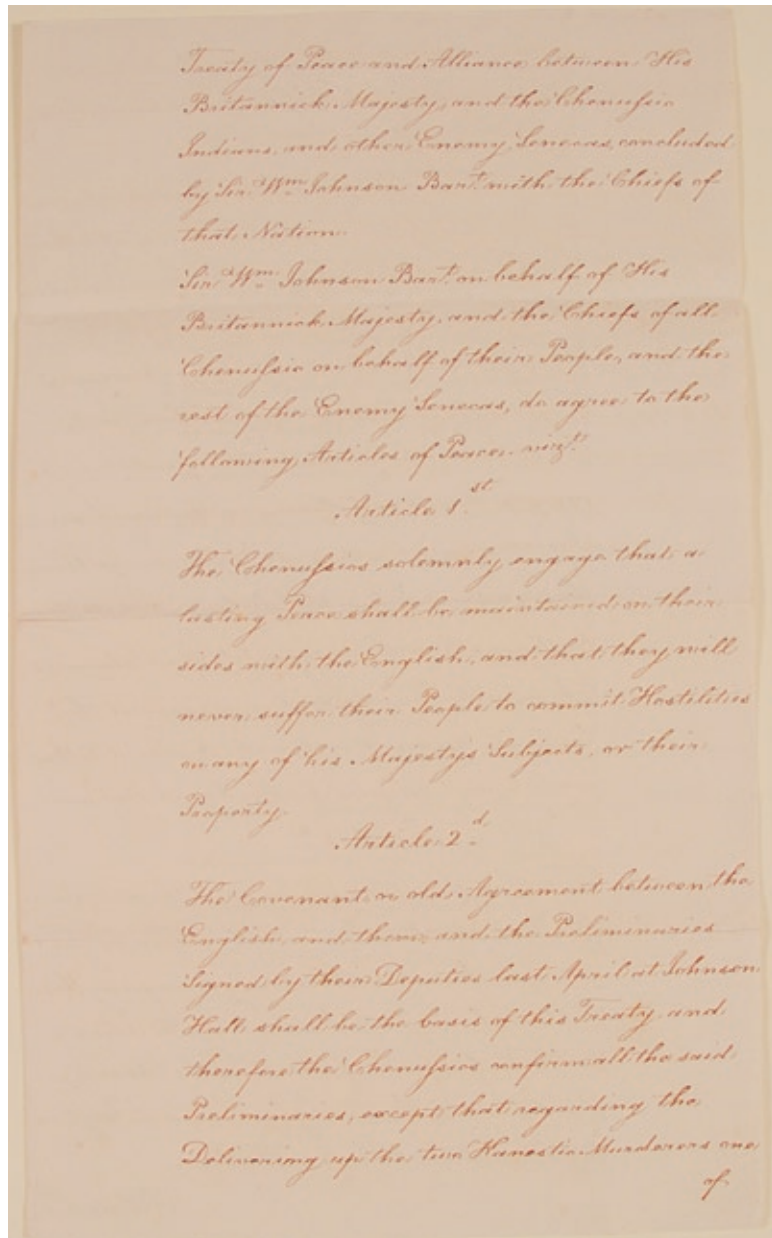 Treaty of Peace and Alliance between His
Britannick Majesty, and the Chenussio
Indians, and other Enemy Senecas, concluded
by Sir Wm Johnson Bart. with the Chiefs of
that Nation.
Sir Wm Johnson Bart. on behalf of His
Britannick Majesty, and the Chiefs of all
Chenussio on behalf of their People, and the
rest of the Enemy Senecas, do agree to the
following Articles of Peace. vizt.
Article 1st.
The Chenussios solemnly engage that a
lasting Peace shall be maintained on their
sides with the English, and that they will
never suffer their People to commit Hostilities
on any of his Majestys Subjects, or their
Property.
Article 2d.
The Covenant or old Agreement between the
English, and them, and the Preliminaries
Signed by their Deputies last April at Johnson
Hall shall be the basis of this Treaty, and
therefore the Chenussios confirm all the said
Preliminaries, except that regarding the
Delivering up the two Kanestio Murderers one
of